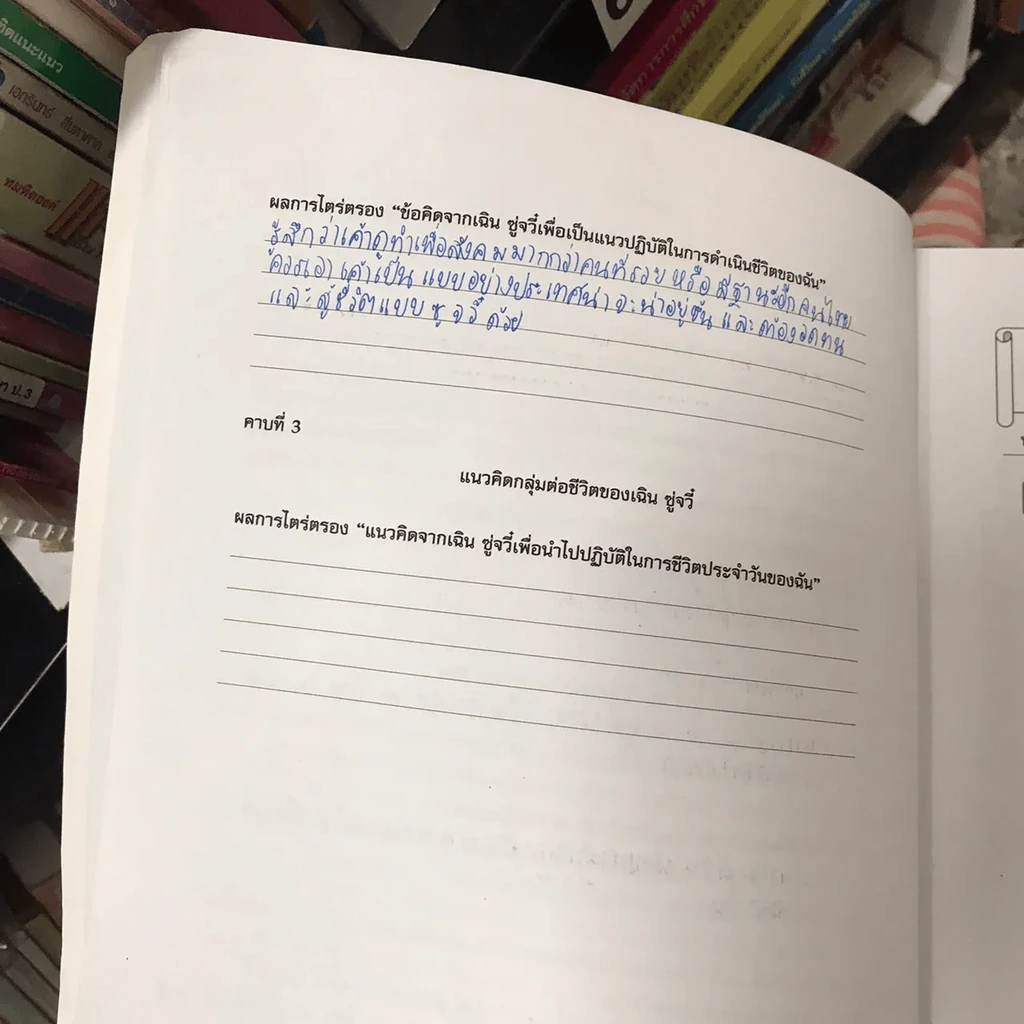 ติดแนะแนว
เอกรินทร์ สี่มหาศาล
ป.3
ผลการไตร่ตรอง “ข้อคิดจากเฉิน ซู่จวี๋เพื่อเป็นแนวปฏิบัติในการดำเนินชีวิตของฉัน”
รู้สึกว่าเค้าดูทำเพื่อสังคมมากกว่าคนที่รวย หรือมีฐานะอีก คนไทย
ควรเอาเค้าเป็นแบบอย่างประเทศน่าจะน่าอยู่ขึ้น และต้องอดทน
และสู้ชีวิตแบบ ซู จวี๋ ด้วย
คาบที่ 3
แนวคิดกลุ่มต่อชีวิตของเฉิน ซู่จวี๋
ผลการไตร่ตรอง “แนวคิดจากเฉิน ซู่จวี๋เพื่อนำไปปฏิบัติในการชีวิตประจำวันของฉัน”